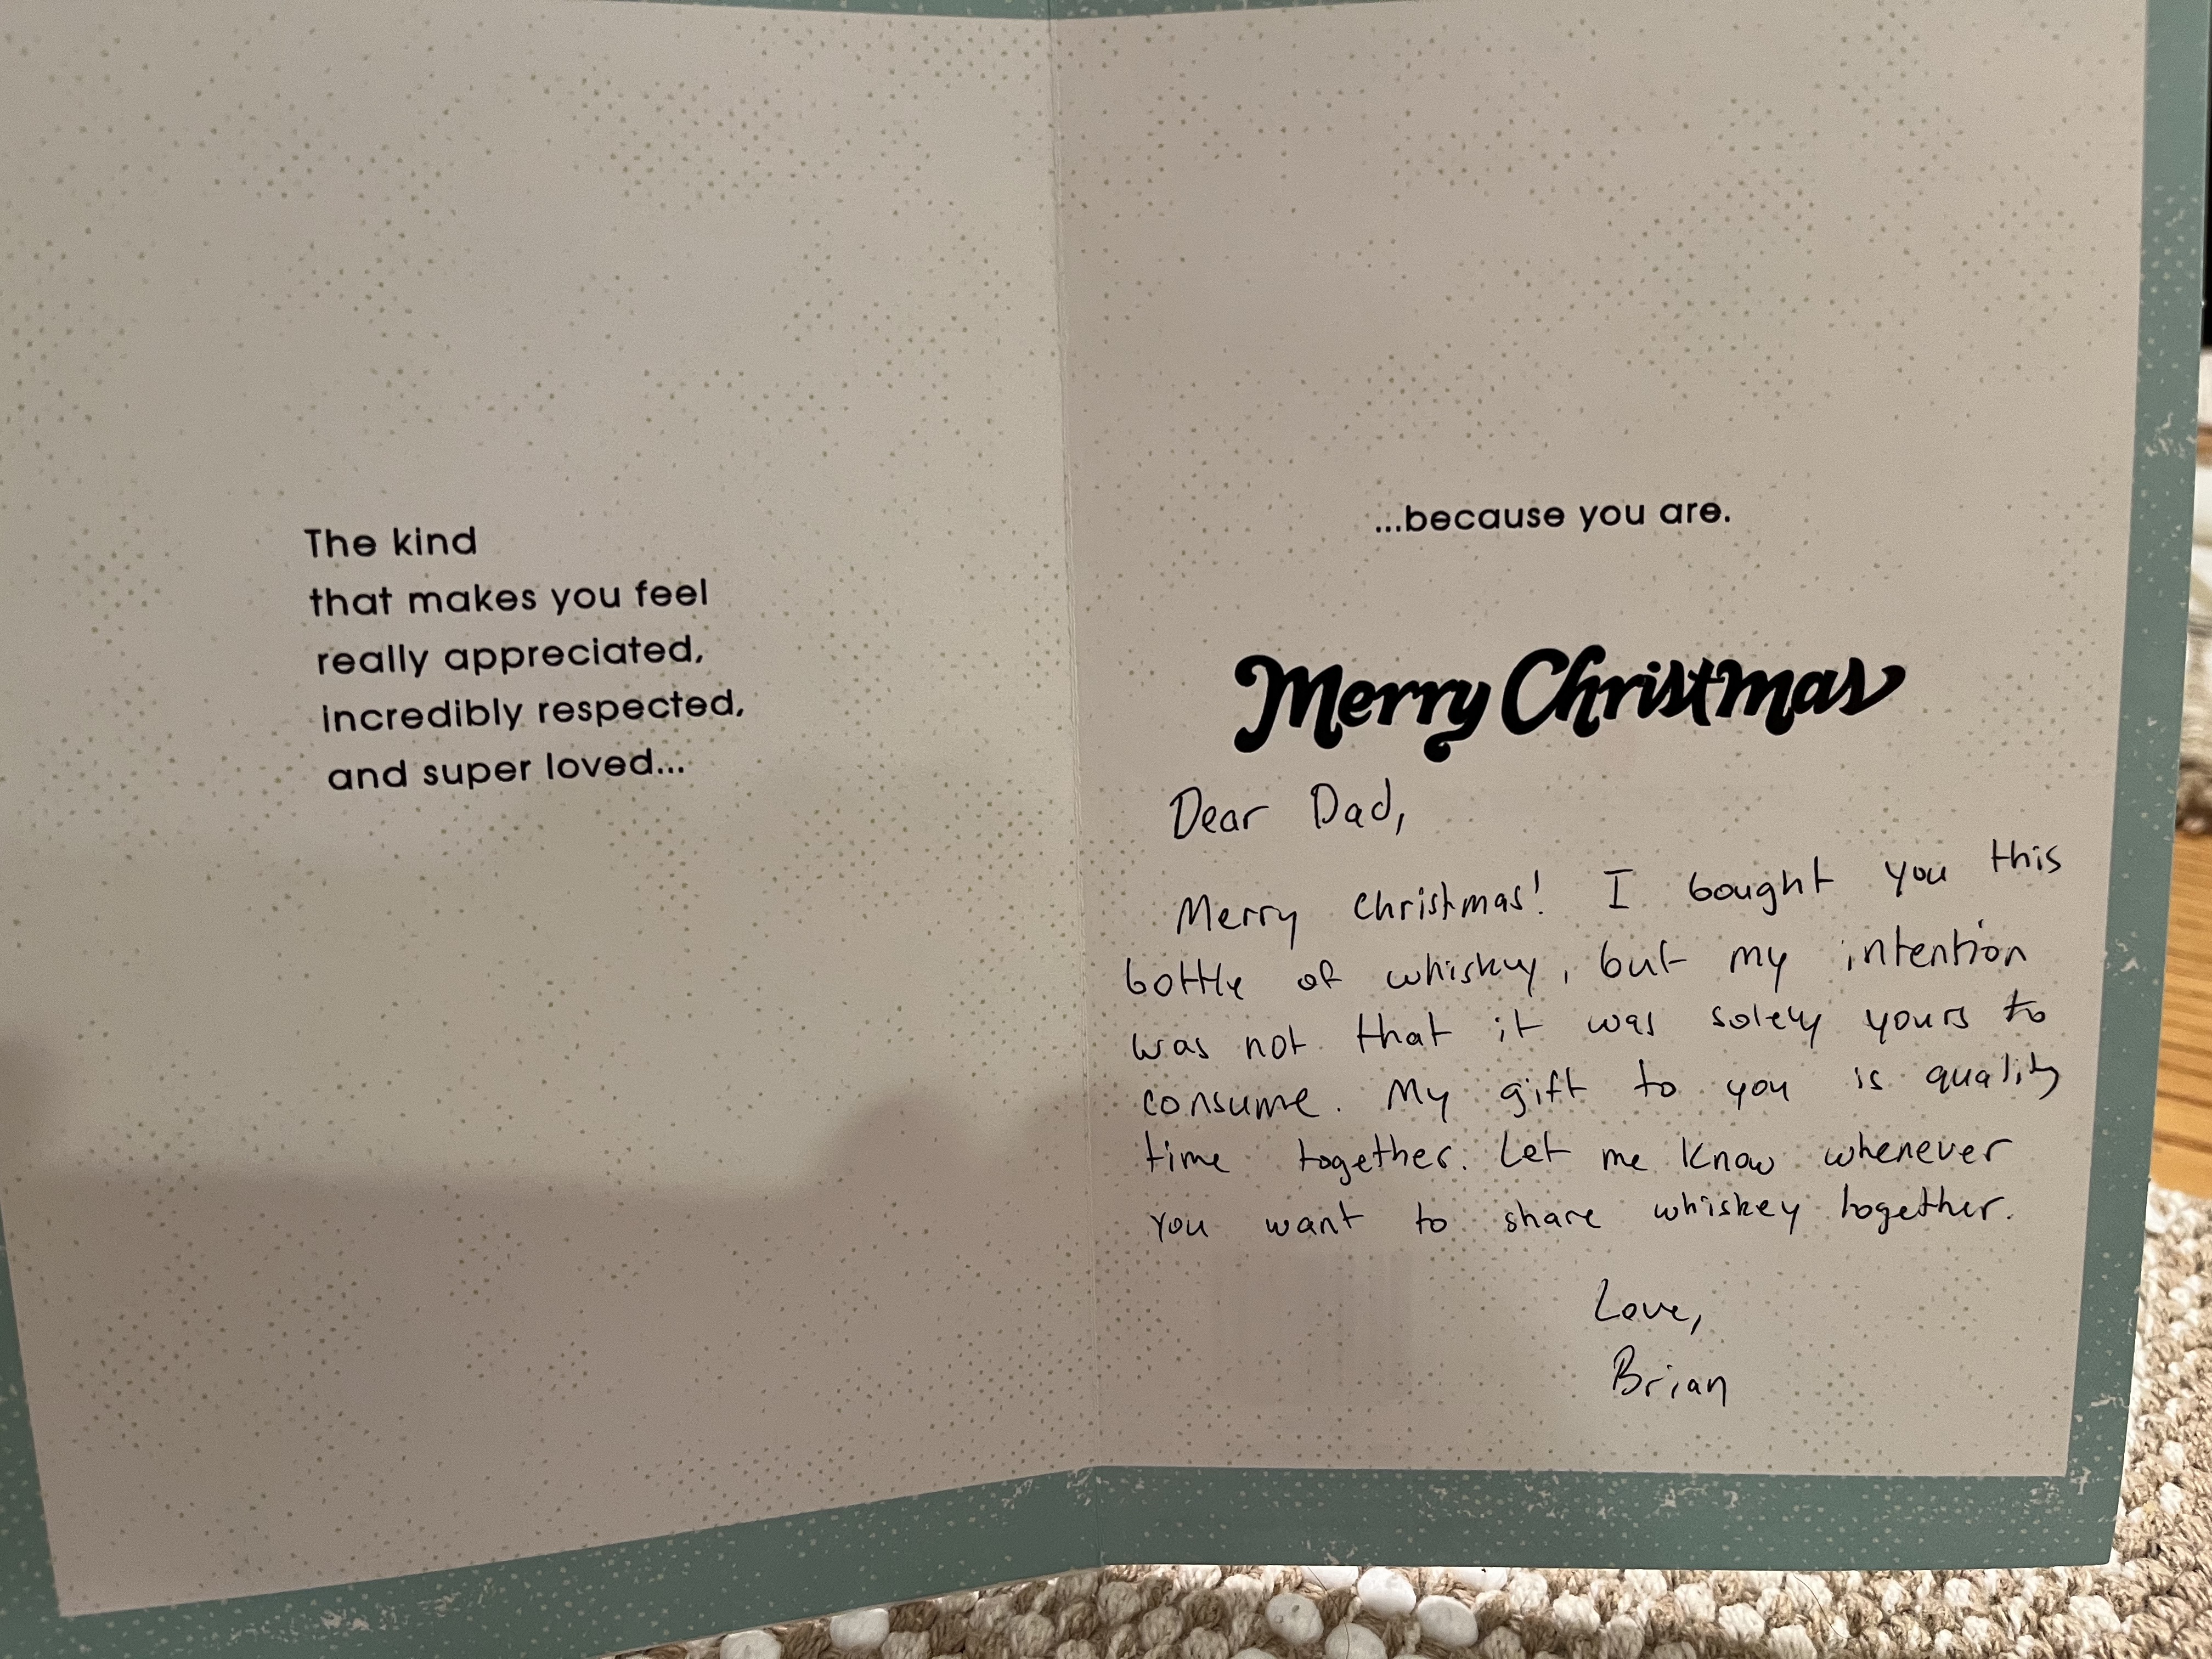 The kind
that makes you feel
really appreciated,
incredibly respected,
and super loved...
...because you are.
Merry Christmas
Dear Dad,
Merry Christmas! I bought you this
bottle of whiskey, but my intention
was not that it was solely yours to
consume. My gift to you is quality
time together. Let me know whenever
you want to share whiskey together.
Love,
Brian